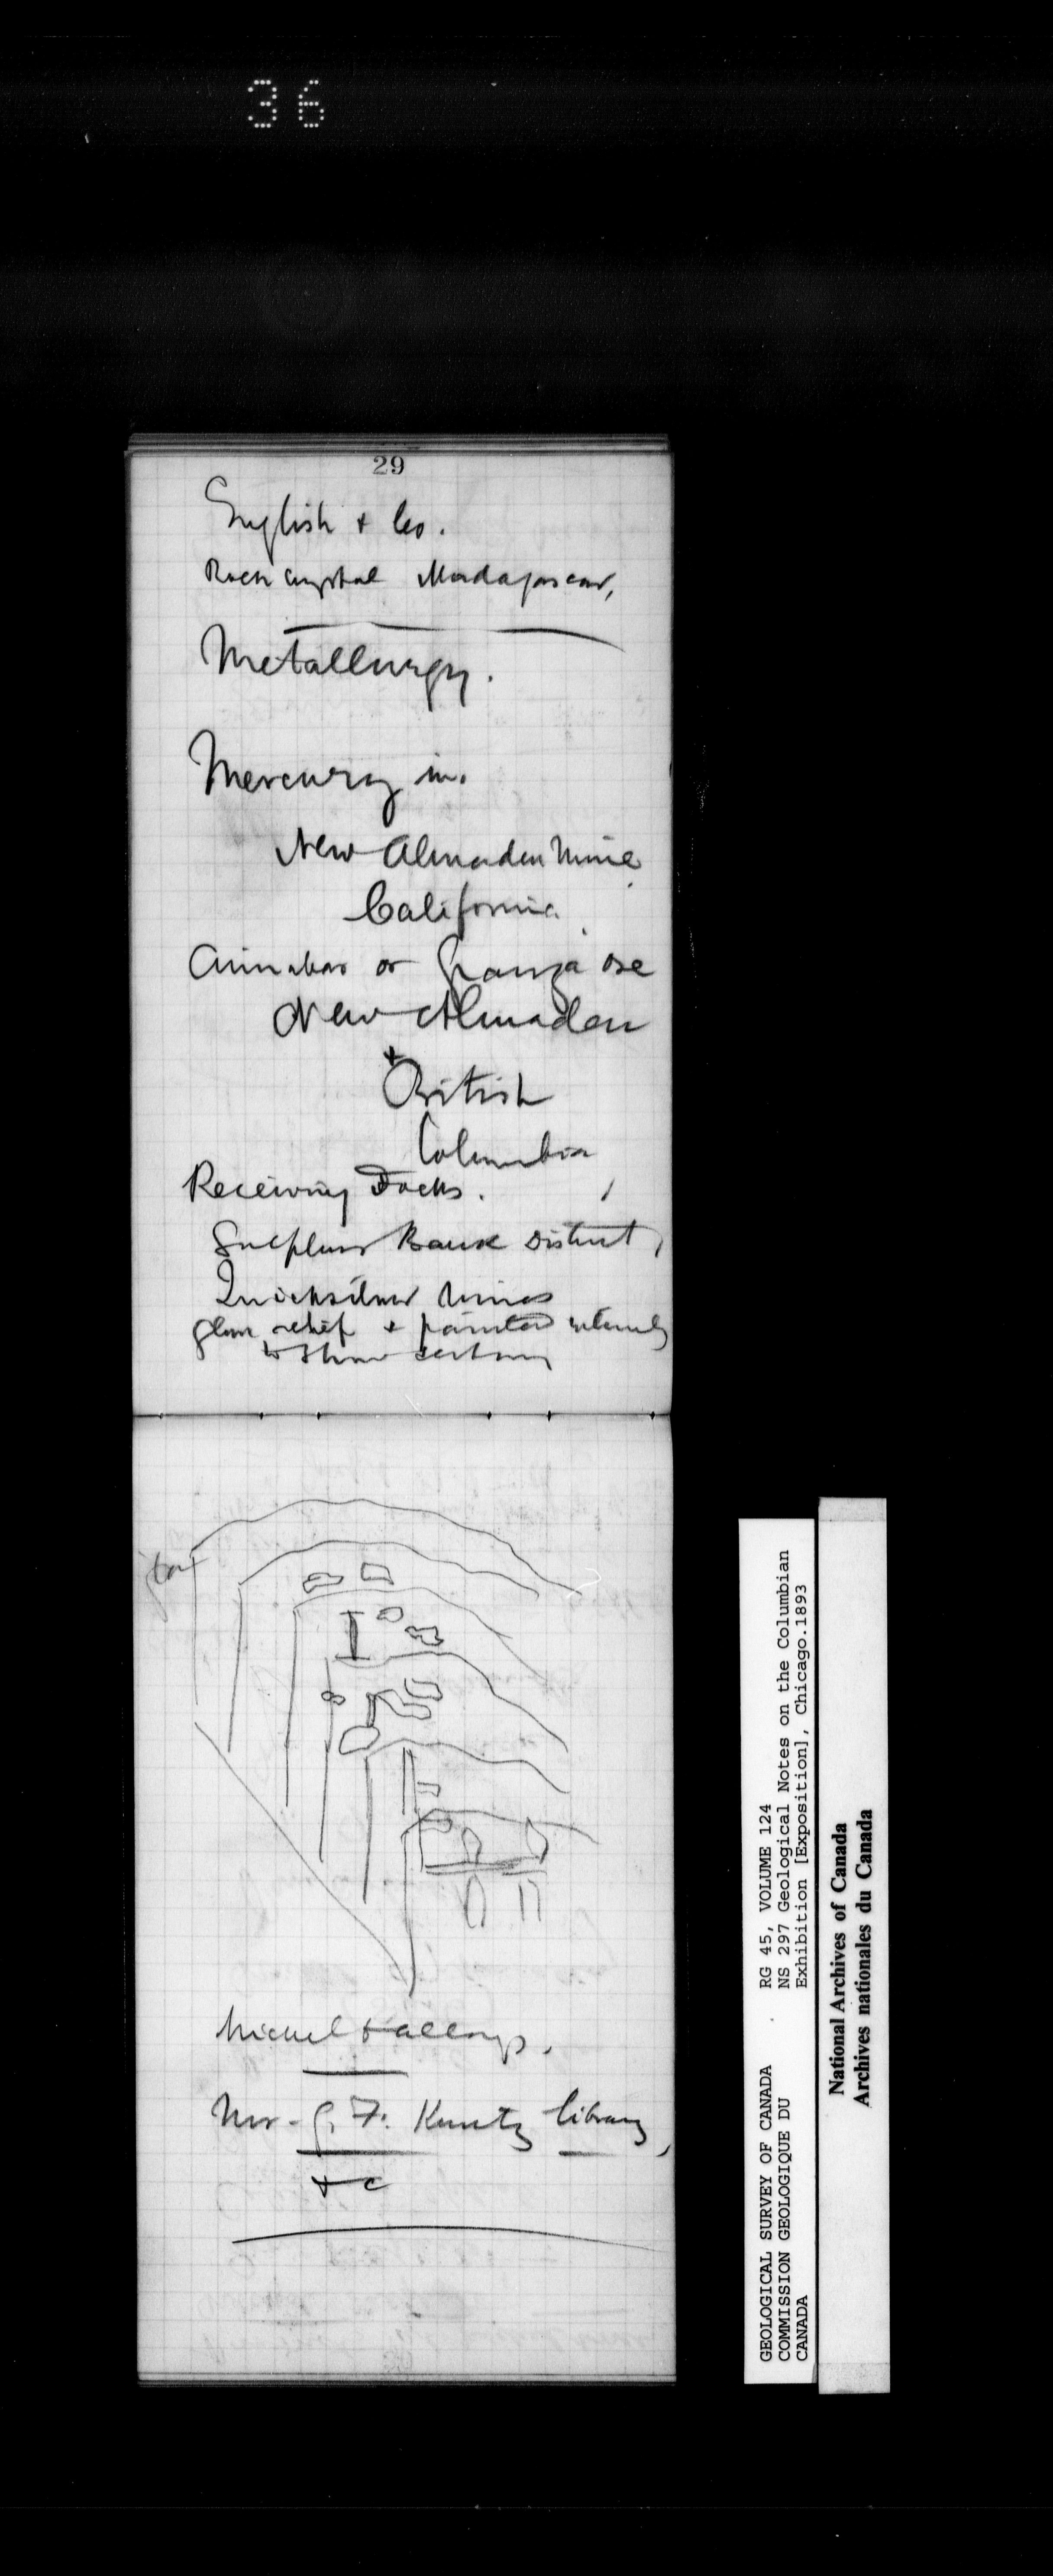 36
29
English & Co.
Rock crystal Madagascar,
Metallurgy.
Mercury in.
New Almaden Mine
California
Cinnabar or Granza ore
New Almaden
+
British
Columbia,
Receiving Docks.
Sulphur Bank District,
Quicksilver Mines
glass relief & painted
to show
Nickel & alloys.
Mr. G. F. Kuntz library,
&c
GEOLOGICAL SURVEY OF CANADA
COMMISSION GEOLOGIQUE DU
CANADA
RG 45, VOLUME 124
NS 297 Geological Notes on the Columbian
Exhibition [Exposition], Chicago.1893
National Archives of Canada
Archives nationales du Canada